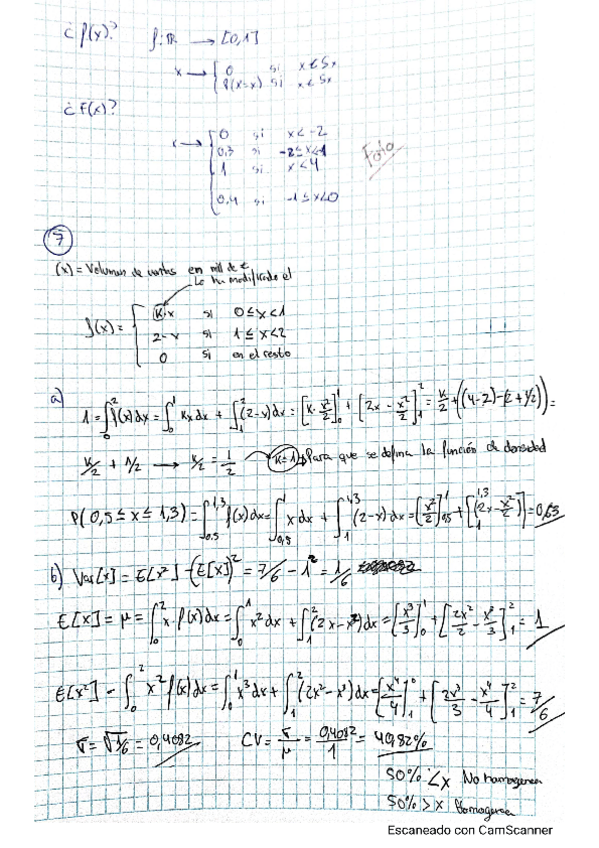 ¿ P(x)? f: ℝ → [0,1]
x → { 0 si x ∉ Sx
P(X=x) si x ∈ Sx
¿ F(x)?
x → { 0 si x < -2
0,3 si -2 ≤ x < -1
1 si x < 4
0,4 si -1 ≤ x < 0
Foto
7
(x) = Volumen de ventas en mill de €
Lo ha modificado el
f(x) = { K·x si 0 ≤ x < 1
2-x si 1 ≤ x < 2
0 si en el resto
a)
1 = ∫₀² f(x)dx = ∫₀¹ kx dx + ∫₁² (2-x)dx = [k·x²/2]₀¹ + [2x - x²/2]₁² = k/2 + ((4-2)-(2+1/2)) =
k/2 + 1/2 → k/2 = 1/2 → k=1 → Para que se defina la función de densidad
P(0,5 ≤ x ≤ 1,3) = ∫₀,₅^1,3 f(x)dx = ∫₀,₅¹ x dx + ∫₁^1,3 (2-x)dx = [x²/2]₀,₅¹ + [2x - x²/2]₁^1,3 = 0,63
b) Var[x] = E[x²] - (E[x])² = 7/6 - 1² = 1/6
E[x] = μ = ∫₀² x·f(x)dx = ∫₀¹ x²dx + ∫₁² (2x-x²)dx = [x³/3]₀¹ + [2x²/2 - x³/3]₁² = 1
E[x²] - ∫₀² x² f(x)dx = ∫₀¹ x³dx + ∫₁² (2x²-x³)dx = [x⁴/4]₁⁰ + [2x³/3 - x⁴/4]₁² = 7/6
σ = √1/6 = 0,4082 CV = σ/μ = 0,4082/1 = 40,82%
50% < x No homogenea
50% > x Homogenea
Escaneado con CamScanner